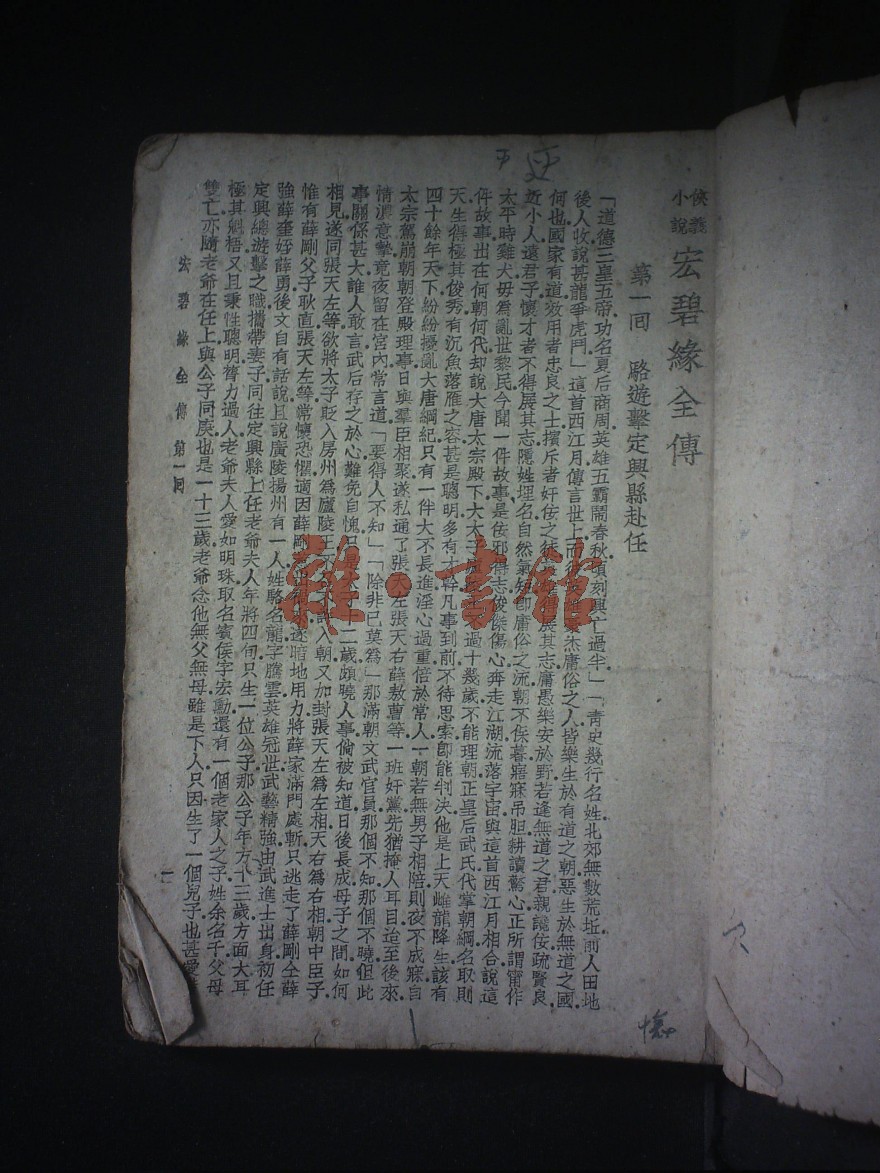 俠義小說 宏碧緣全傳
第一回　駱遊擊定興縣赴任
「道德三皇五帝功名夏后商周英雄五霸鬧春秋頃刻興亡過半」「靑史幾行名姓北邙無數荒坵前人田地
後人收說甚龍爭虎鬥」這首西江月傳言世上而 杰庸俗之人皆樂生於有道之朝惡生於無道之國
何也國家有道效用者忠良之士擯斥者奸佞之 其志庸愚樂安於野若逢無道之君親讒佞疏賢良
近小人遠君子懷才者不得展其志隱姓埋名自然氣短卽庸俗之流朝不保暮寤寐吊胆耕讀驚心正所謂甯作
太平時雞犬毋爲亂世黎民今聞一件故事是佞邪得志俊傑傷心奔走江湖流落宇宙與這首西江月相合說這
件故事出在何朝何代却說大唐太宗殿下大太子 過十幾歲不能理朝正皇后武氏代掌朝綱名取則
天生得極其俊秀有沉魚落雁之容甚是聰明多有才幹凡事到前不待思索卽能判決他是上天雌龍降生該有
四十餘年天下紛紛擾亂大唐綱紀只有一件大不長進淫心過重倍於常人一朝若無男子相陪則夜不成寐自
太宗駕崩朝朝登殿理事日與羣臣相聚遂私通了張天左張天右薛敖曹等一班奸黨先猶掩人耳目迨至後來
情濃意摯竟夜留在宮內常言道「要得人不知」「除非己莫爲」那滿朝文武官員那個不知那個不曉但此
事關係甚大誰人敢言武后存之於心難免自愧只 十二歲頗曉人事倘被知道日後長成母子之間如何
相見遂同張天左等欲將太子貶入房州爲廬陵王不 入朝又加封張天左爲左相天右爲右相朝中臣子
惟有薛剛父子耿直張天左等常懷恐懼適因薛剛 遂暗地用力將薛家滿門處斬只逃走了薛剛仝薛
強薛奎姪薛勇後文自有話說且說廣陵揚州有一人姓駱名龍字騰雲英雄冠世武藝精強由武進士出身初任
定興縣遊擊之職攜帶妻子同往定興縣上任老爺夫人年將四旬只生一位公子那公子年方十三歲方面大耳
極其魁梧又且秉性聰明膂力過人老爺夫人愛如明珠取名賓侯字宏勳還有一個老家人之子姓余名千父母
雙亡亦隨老爺在任上與公子同庚也是一十三歲老爺念他無父無母雖是下人只因生了一個兒子也甚愛
宏碧緣全傳　第一回　一
雜·書館